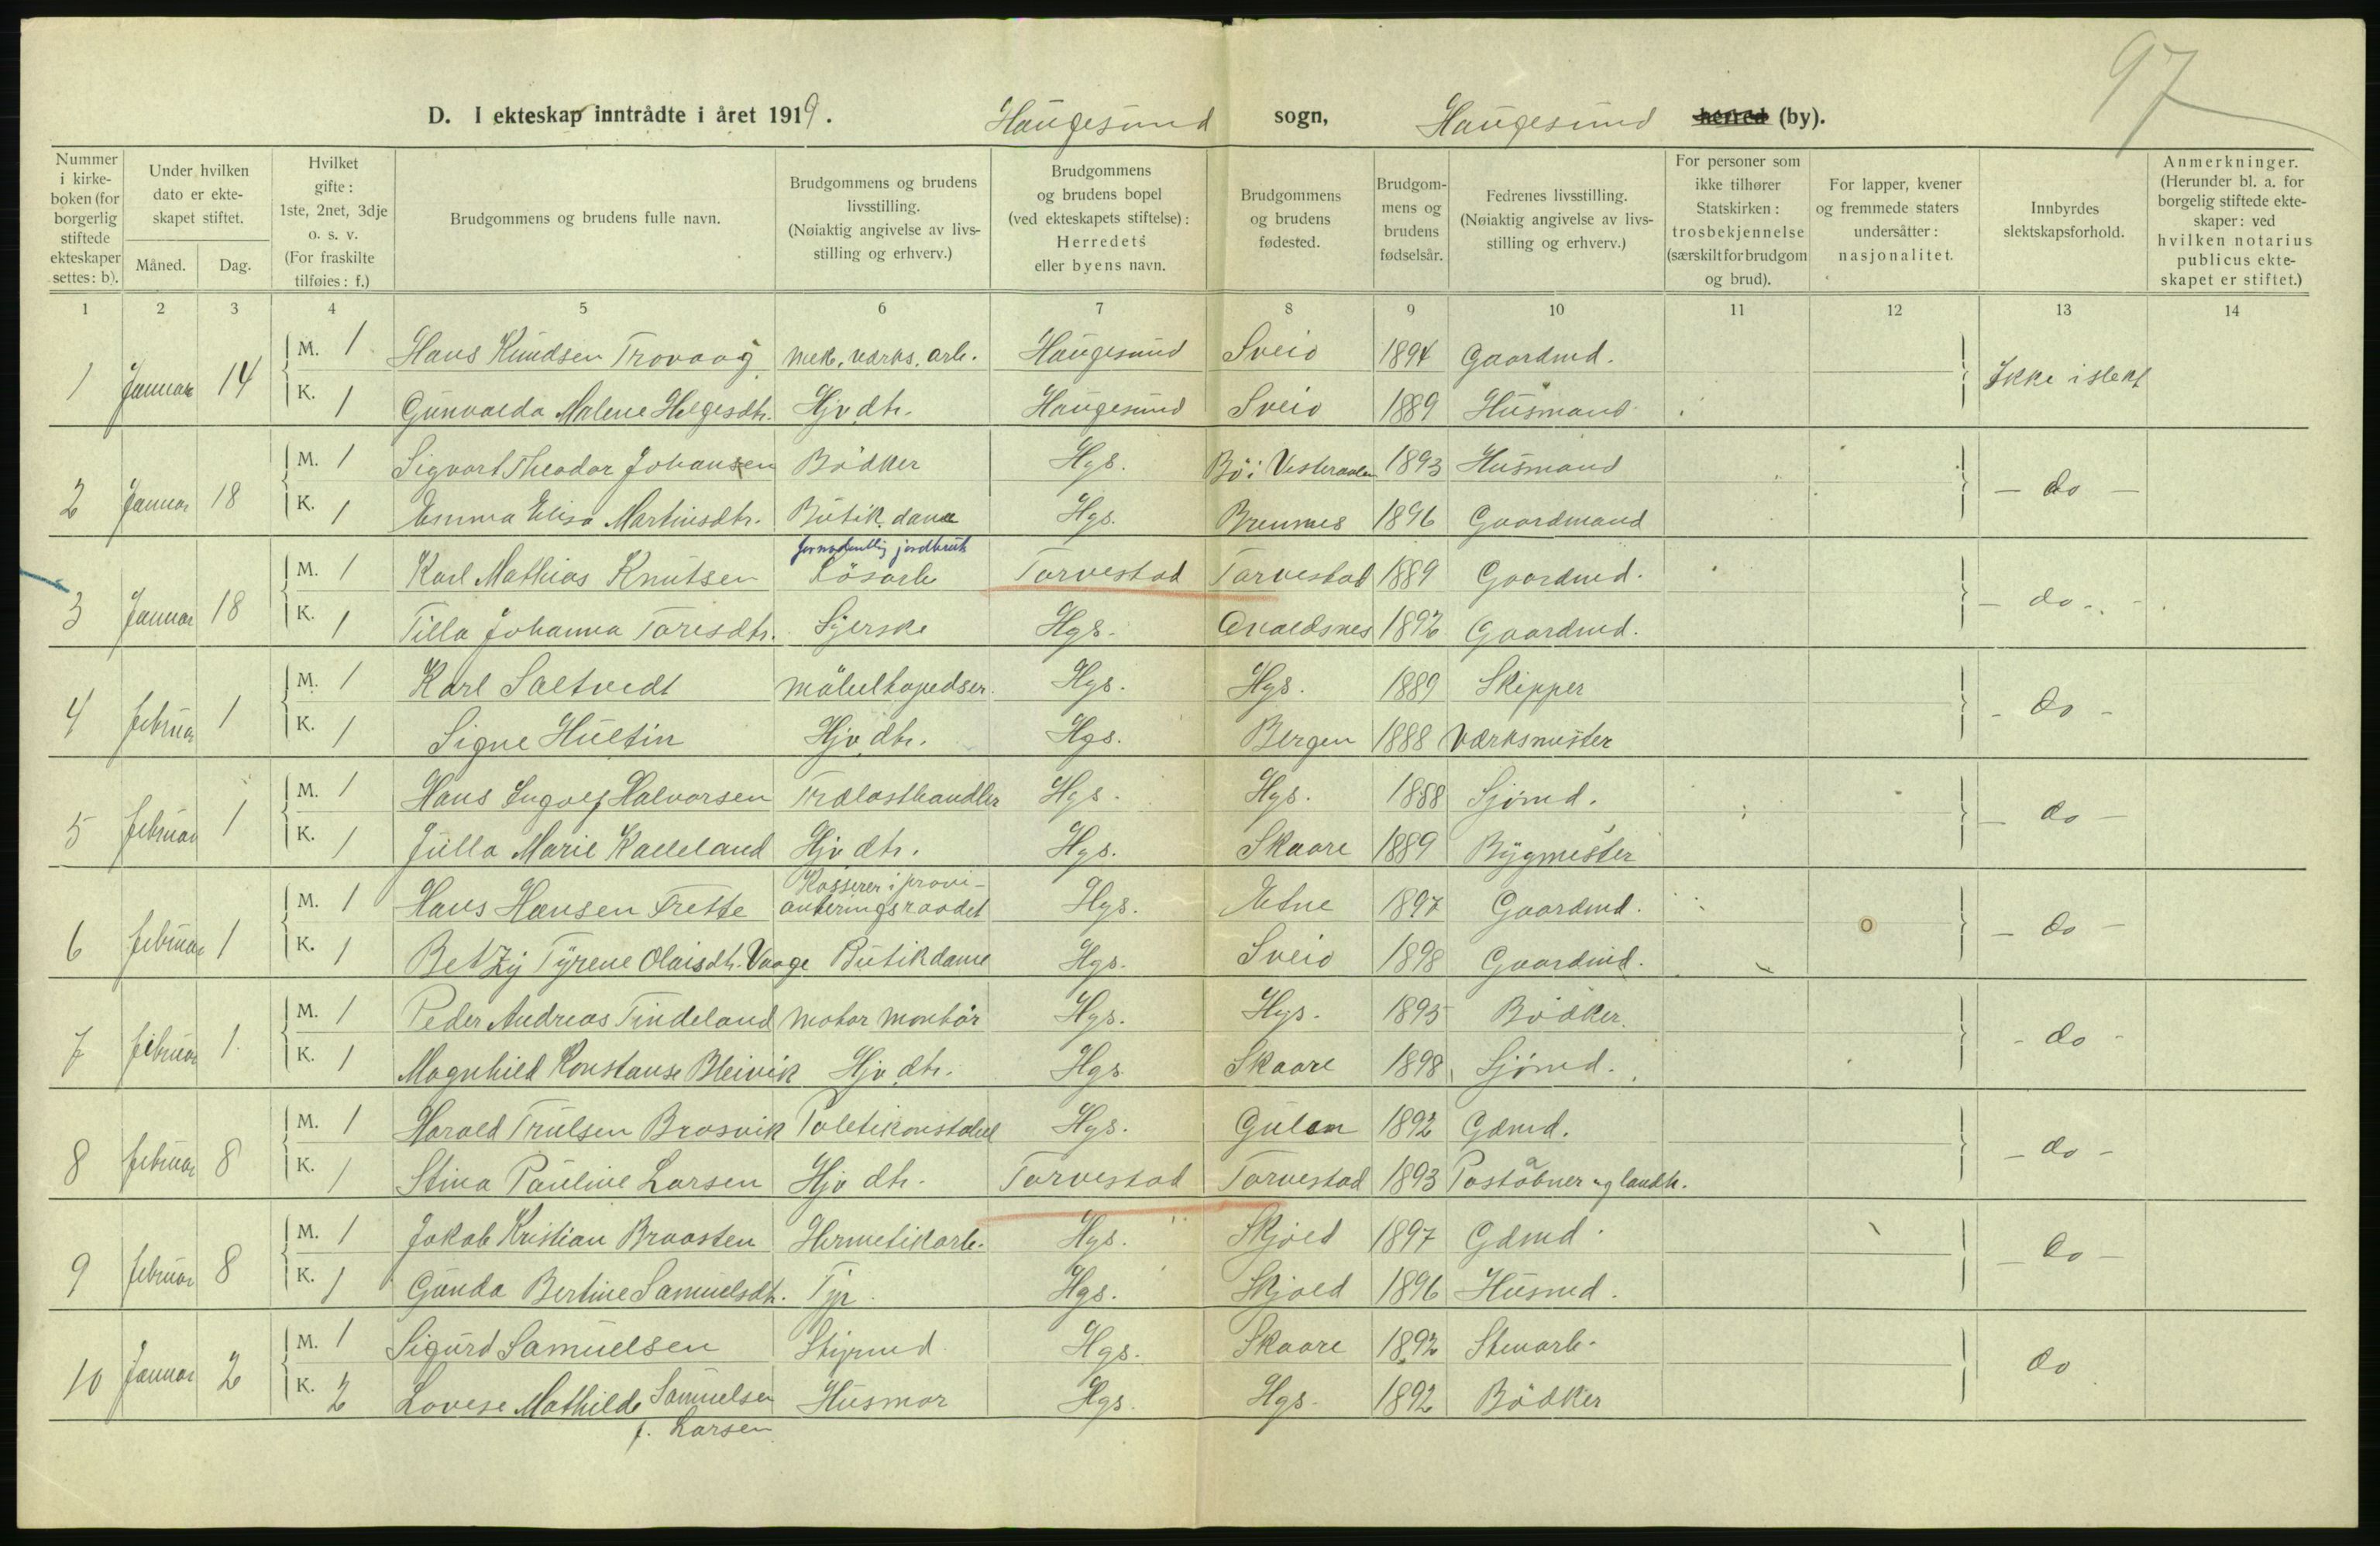 97
D. I ekteskap inntrådte i året 1919. Haugesund sogn, Haugesund herred (by).
Nummer i kirkeboken (for borgerlig stiftede ekteskaper settes: b).
Under hvilken dato er ekteskapet stiftet.
Måned. Dag.
Hvilket gifte: 1ste, 2net, 3dje o. s. v. (For fraskilte tilføies: f.)
Brudgommens og brudens fulle navn.
Brudgommens og brudens livsstilling. (Nøiaktig angivelse av livsstilling og erhverv.)
Brudgommens og brudens bopel (ved ekteskapets stiftelse): Herredets eller byens navn.
Brudgommens og brudens fødested.
Brudgommens og brudens fødselsår.
Fedrenes livsstilling. (Nøiaktig angivelse av livsstilling og erhverv.)
For personer som ikke tilhører Statskirken: trosbekjennelse (særskilt for brudgom og brud).
For lapper, kvener og fremmede staters undersåtter: nasjonalitet.
Innbyrdes slektskapsforhold.
Anmerkninger. (Herunder bl. a. for borgerlig stiftede ekteskaper: ved hvilken notarius publicus ekteskapet er stiftet.)
1 2 3 4 5 6 7 8 9 10 11 12 13 14
1 Januar 14 M. 1 Hans Knudsen Trovaag mek. værks. arb. Haugesund Sveio 1894 Gaardmd. Ikke i slekt
K. 1 Gunvalda Malene Helgesdtr. Hjv. dtr. Haugesund Sveio 1889 Husmand
2 Januar 18 M. 1 Sigvart Theodor Johansen Bödker Hgs. Bö i Vesteraalen 1893 Husmand - do -
K. 1 Emma Elisa Martinsdtr. Butik. dame Hgs. Bremnes 1896 Gaardmand
jordbruk
3 Januar 18 M. 1 Karl Mathias Knutsen Lösarb Torvestad Torvestad 1889 Gaardmd. - do -
K. 1 Tilla Johanna Toresdtr. Syerske Hgs. Avaldsnes 1892 Gaardmd.
4 februar 1 M. 1 Karl Saltvedt möbeltapedser. Hgs. Hgs. 1889 Skipper - do -
K. 1 Signe Hultin Hjv. dtr. Hgs. Bergen 1888 Værksmester
5 februar 1 M. 1 Hans Ingolf Halvorsen Trælasthandler Hgs. Hgs. 1888 Sjömd. - do -
K. 1 Julla Marie Kalleland Hjv dtr. Hgs. Skaare 1889 Bygmester
6 februar 1 M. 1 Hans Hansen Frette Kasserer i proviantering sraadet Hgs. Etne 1897 Gaardmd. - do -
K. 1 Betzy Tyrene Olaisdtr. Vaage Butikdame Hgs. Sveio 1898 Gaardmd.
7 februar 1 M. 1 Peder Andreas Tindeland motor montör Hgs. Hgs. 1895 Bödker. - do -
K. 1 Magnhild Konstanse Bleivik Hjv. dtr. Hgs. Skaare 1898 Sjömd.
8 februar 8 M. 1 Harald Trulsen Brosvik Poletikonstabel Hgs. Gulen 1892 Gdmd. - do -
K. 1 Stina Pauline Larsen Hjv dtr. Torvestad Torvestad 1893 Poståbner og landh.
9 februar 8 M. 1 Jakob Kristian Braasten Hermetikarb. Hgs. Skjold 1897 Gdmd. - do -
K. 1 Gunda Bertine Samuelsdtr. Tjp. Hgs. Skjold 1896 Husmd.
10 Januar 2 M. 1 Sigurd Samuelsen Styrmd Hgs. Skaare 1892 Stenarb. do
K. 2 Lovise Mathilde Samuelsen Husmor Hgs. Hgs. 1892 Bödker
f. Larsen